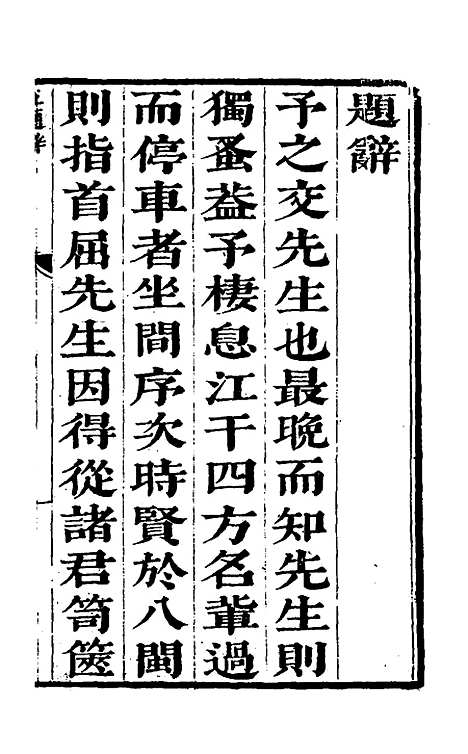 題辭
予之交先生也最晩而知先生則
獨蚤葢予棲息江干四方名軰過
而停車者坐間序次時賢於八閩
則指首屈先生因得從諸君笥篋